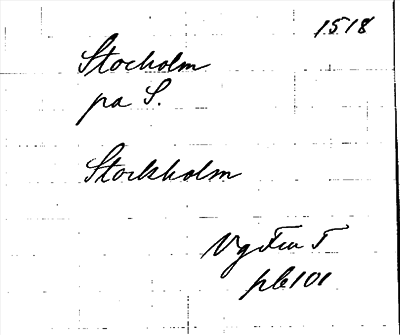 1518
Stocholm
pa S.
Stockholm
VgFru T
pb101